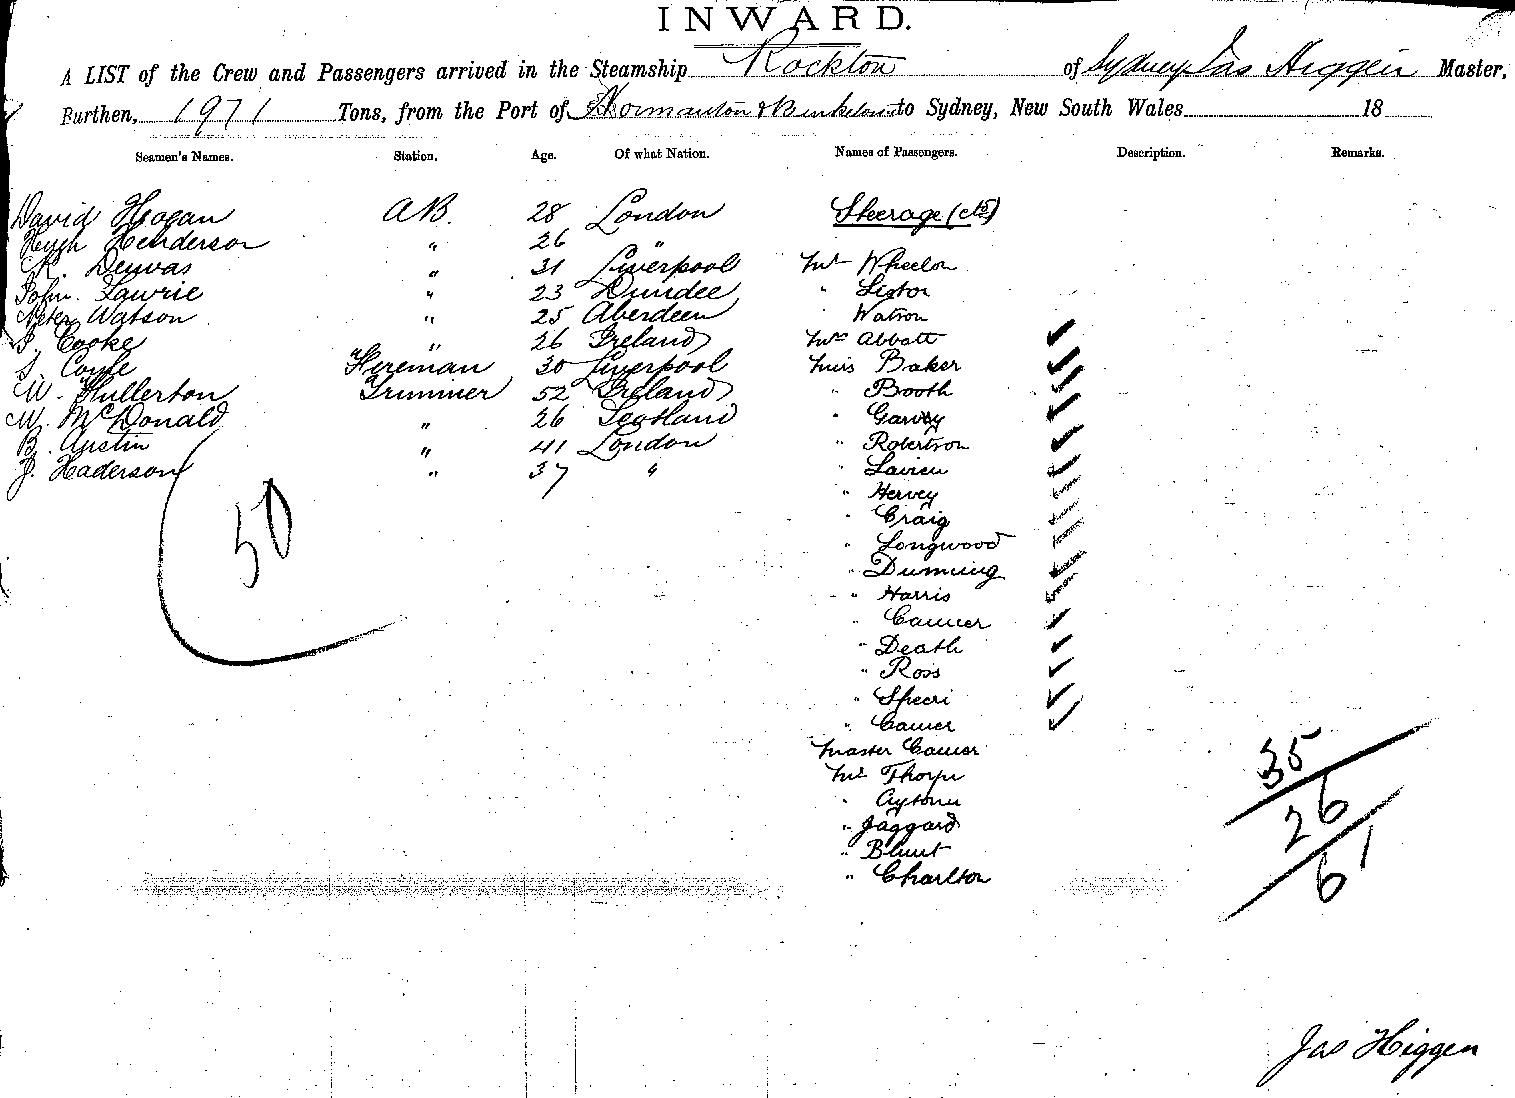 INWARD.
A LIST of the Crew and Passengers arrived in the Steamship Rockton of Sydney Jas Higgen Master,
Burthen, 1971 Tons, from the Port of Normanton & to Sydney, New South Wales 18
Seamen's Names. Station. Age. Of what Nation. Names of Passengers. Description. Remarks.
David Hogan A B. 28 London Steerage (ctd)
Hugh Henderson " 26 "
K. " 31 Liverpool Mr Wheelon
John Lawrie " 23 Dundee " Lister
Peter Watson " 25 Aberdeen " Watson
Cooke " 26 Ireland Mrs Abbott
Coyle Fireman 30 Liverpool Miss Baker
W. Fullerton Trimmer 52 Ireland " Booth
M. McDonald " 26 Scotland " Garvey
B. Austin " 41 London " Robertson
J. Haderson " 37 " "
" Hervey
" Craig
50
" Longwood
"
" Harris
"
" Death
" Ross
"
"
Master
35
Mr Thorpe
"
26
" Jaggard
" Blunt
61
" Charlton
Jas Higgen